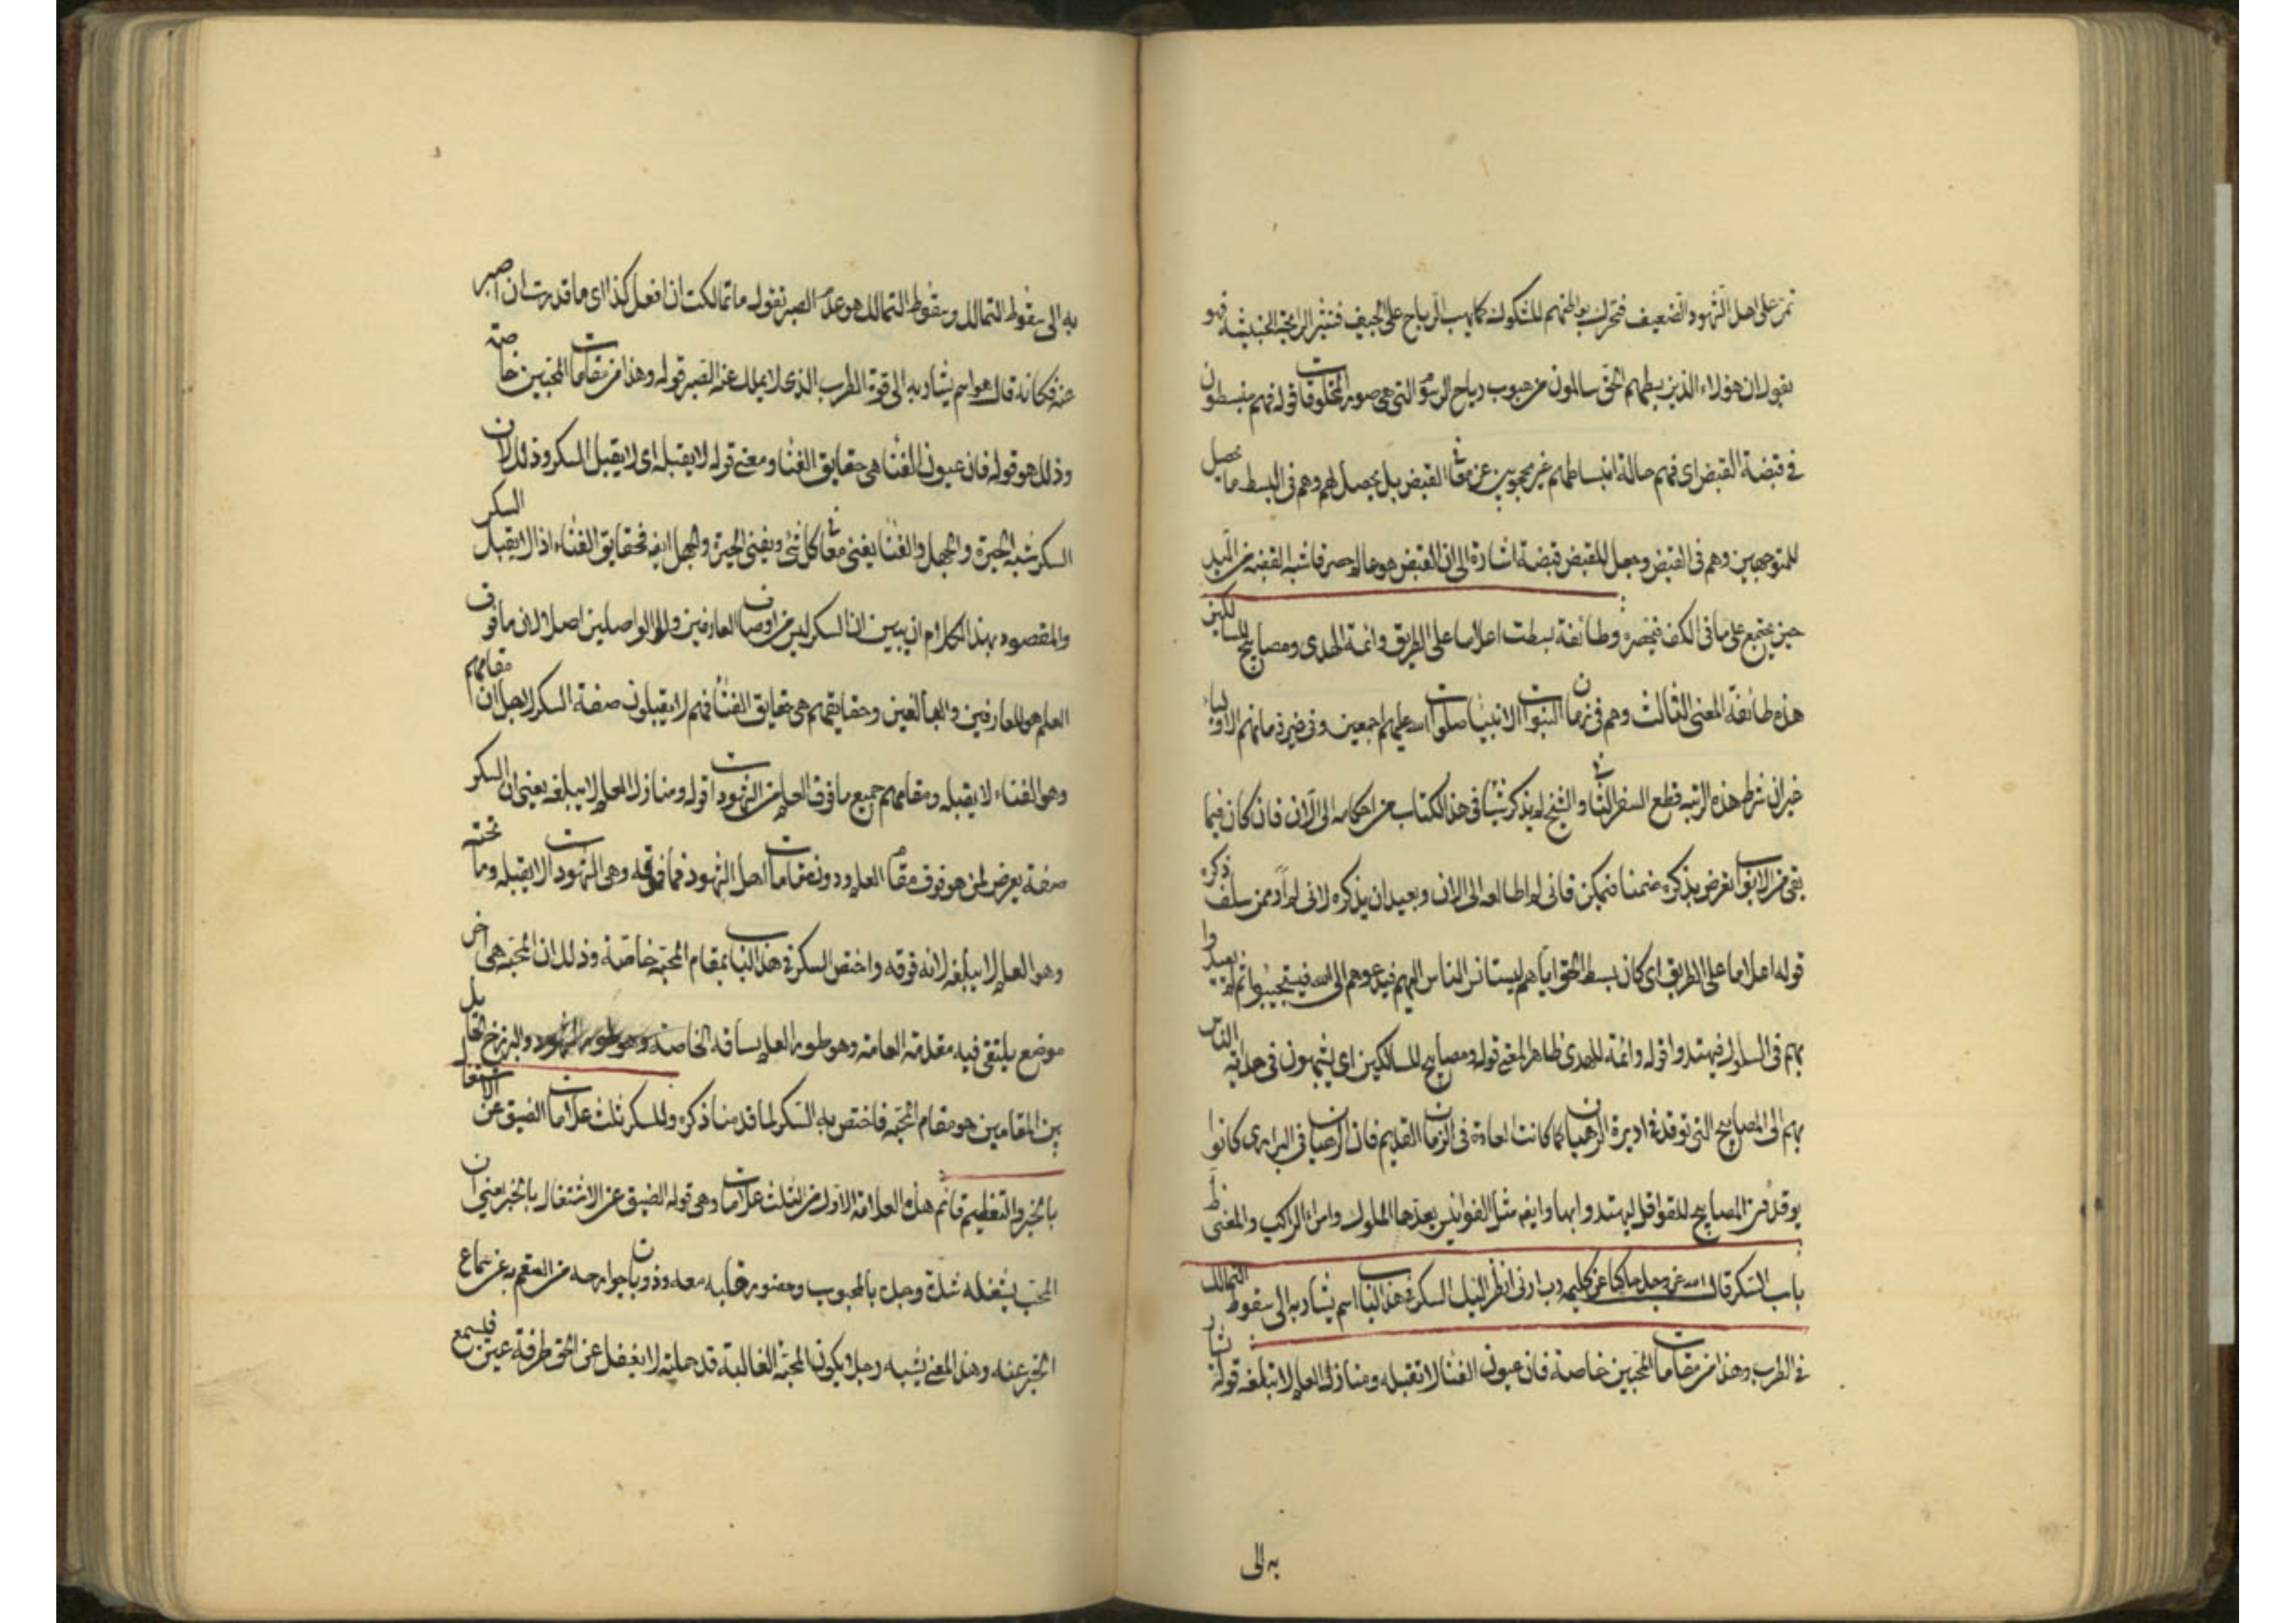 تمر على اهل الشهود الضعيف فتحرك بواطنهم للشكوك كما يهب الرياح على الجيف فتثير الرايحة الخبيثة فهو
يقول ان هؤلاء الذين بسطهم الحق سالمون من هبوب رياح الرسوم التي هي صور المخلوقات قوله فهم منبسطون
في قبضة القبض اى فهم حالة انبساطهم غير محجوبين عن مقام القبض بل يحصل لهم وهم في البسط ما يحصل
للمتوجهين وهم في القبض وجعل للقبض قبضة اشارة الى ان القبض هو عالم حصر فاشبه القبضة من اليد
حين يجتمع على ما في الكف فتحصره وطائفة بسطت اعلاما على الطريق وائمة الهدى ومصابيح للسالكين
هذه طائفة المعنى الثالث وهم في زمان النبوات الانبيا صلوات الله عليهم اجمعين وفى غير زمانهم الاولياء
غير ان شرط هذه الرتبة قطع السفر الثانى والشيخ لم يذكر شيئا في هذا الكتاب من احكامه الى الآن فان كان فيما
بقى من الابواب تعرض بذكره ضمنا فممكن فانى لم اطالعه الى الان وبعيد ان يذكره لانى لم ار ممن سلف ذكره
قوله اعلاما على الطريق اى كان بسط الحق اياهم ليستانس الناس اليهم فيدعوهم الى الله فيستجيبوا ثم يقتدوا
بهم في السلوك فيهتدوا قوله وائمة للهدى ظاهر المعنى قوله ومصابيح للسالكين اى يشبهون في هداية الناس
بهم الى المصابيح التى توقد في اديرة الرهبان كما كانت العادة في الزمان القديم فان الرهبان في البرارى كانوا
يوقدون المصابيح للقوافل ليهتدوا بها وايضا مثل الفوانيس يعدها الملوك وامراء الراكب والمعنى ظ
باب السكر قال الله عز وجل حاكيا عن كليمه رب ارنى انظر اليك السكر في هذا الباب اسم يشار به الى سقوط التمالك
في الطرب وهذا من مقامات المحبين خاصة فان عيون الفنا لا تقبله ومنازل العلم لا تبلغه قوله يشار
به الى
به الى سقوط التمالك وسقوط التمالك هو عدم الصبر تقول ما تمالكت ان افعل كذا اى ما قدرت ان اصبر
عنه فكانه قال هو اسم يشار به الى قوة الطرب الذى لا يملك عنه الصبر قوله وهذا من مقامات المحبين خاصة
وذلك هو قوله فان عيون الفنا هى حقايق الفنا ومعنى قوله لا يقبله اى لا يقبل السكر وذلك لان
السكر شبه الحيرة والجهل والفنا يفنى معه كل شئ ويفنى الحيرة والجهل ايضا فحقايق الفناء اذا لا يقبل السكر
والمقصود بهذا الكلام ان يبين ان السكر ليس من اوصاف العارفين ولا الواصلين اصلا لان ما فوق
العلم هو للعارفين والبالغين وحقايقهم هى حقايق الفنا فهم لا يقبلون صفة السكر لاجل ان مقامهم
وهو الفناء لا يقبله ومقامهم جميع ما فوق العلم من الشهودات قوله ومنازل العلم لا يبلغه يعنى ان السكر
صفة يعرض لمن هو فوق مقام العلم ودون مقامات اهل الشهود فما فوقه وهى الشهودات لا يقبله وما تحته
وهو العلم لا يبلغه لانه فوقه واختص السكر في هذا الباب بمقام المحبة خاصة وذلك ان المحبة هى اخر
موضع يلتقى فيه مقدمة العامة وهو طور العلم بساقة الخاصة وهو طور الشهود والبرزخ الحايل
بين المقامين هو مقام المحبة فاختص به السكر لما قدمنا ذكره وللسكر ثلث علامات الضيق عن الاشتغال
بالخبر والتعظيم قائم هذه العلامة الاولى من الثلث علامات وهى قوله الضيق عن الاشتغال بالخبر يعنى ان
المحب يشغله شدة وجده بالمحبوب وحضور قلبه معه وذوبان جوارحه من السقم به عن سماع
الخبر عنه وهذا المعنى يشبه رجلا يكون المحبة الغالبة قد حملته لا يغفل عن الحق طرفة عين فيسمع